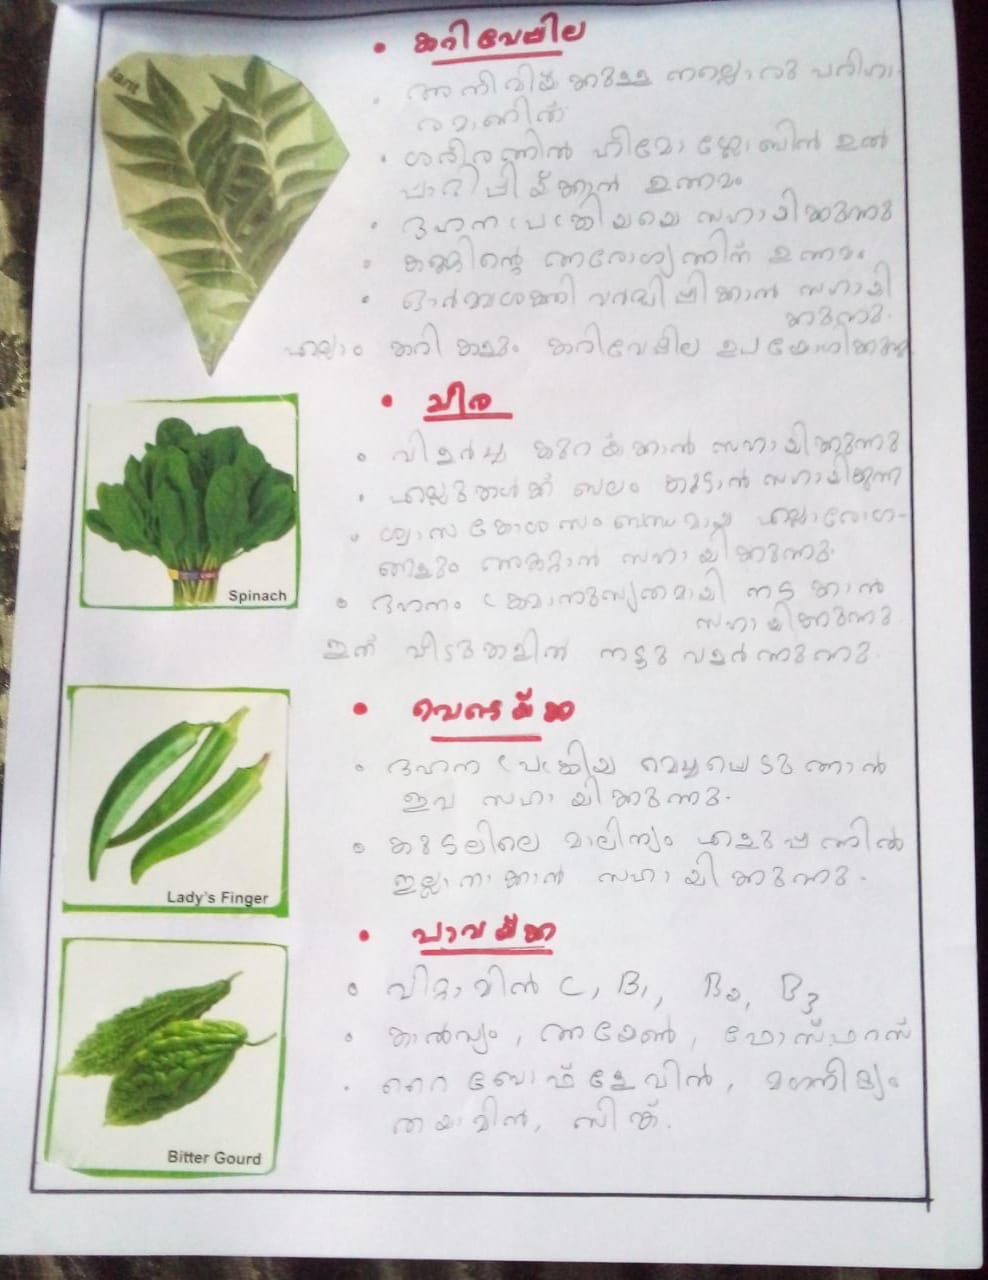 • കറിവേപ്പില
• അനീമിയക്കുള്ള നല്ലൊരു പരിഹാ-
രമാണിത്
• ശരീരത്തിൽ ഹീമോഗ്ലോബിൻ ഉൽ
പ്പാദിപ്പിയ്ക്കാൻ ഉത്തമം
• ദഹനപ്രക്രിയയെ സഹായിക്കുന്നു
• കണ്ണിന്റെ ആരോഗ്യത്തിന് ഉത്തമം
• ഓർമ്മശക്തി വർദ്ധിപ്പിക്കാൻ സഹായി
ക്കുന്നു.
എല്ലാം കറികളും കറിവേപ്പില ഉപയോഗിക്കുന്നു
• ചീര
• വിളർച്ച കുറയ്ക്കാൻ സഹായിക്കുന്നു
• എല്ലുകൾക്ക് ബലം കൂട്ടാൻ സഹായിക്കുന്നു
• ശ്വാസകോശസംബന്ധമായ എല്ലാരോഗ-
ങ്ങളും അകറ്റാൻ സഹായിക്കുന്നു.
• ദഹനം ക്രമാനുസൃതമായി നടക്കാൻ
സഹായിക്കുന്നു
ഇത് വീടുകളിൽ നട്ടു വളർത്തുന്നു.
Spinach
• വെണ്ടയ്ക്ക
• ദഹന പ്രക്രിയ മെച്ചപ്പെടുത്താൻ
ഇവ സഹായിക്കുന്നു.
• കുടലിലെ മാലിന്യം എളുപ്പത്തിൽ
ഇല്ലാതാക്കാൻ സഹായിക്കുന്നു.
Lady's Finger
• പാവയ്ക്ക
• വിറ്റാമിൻ C, B1, B2, B3
• കാൽസ്യം, അയേൺ, ഫോസ്ഫറസ്
• റൈബോഫ്ളേവിൻ, മഗ്നീഷ്യം
തയാമിൻ, സിങ്ക്.
Bitter Gourd